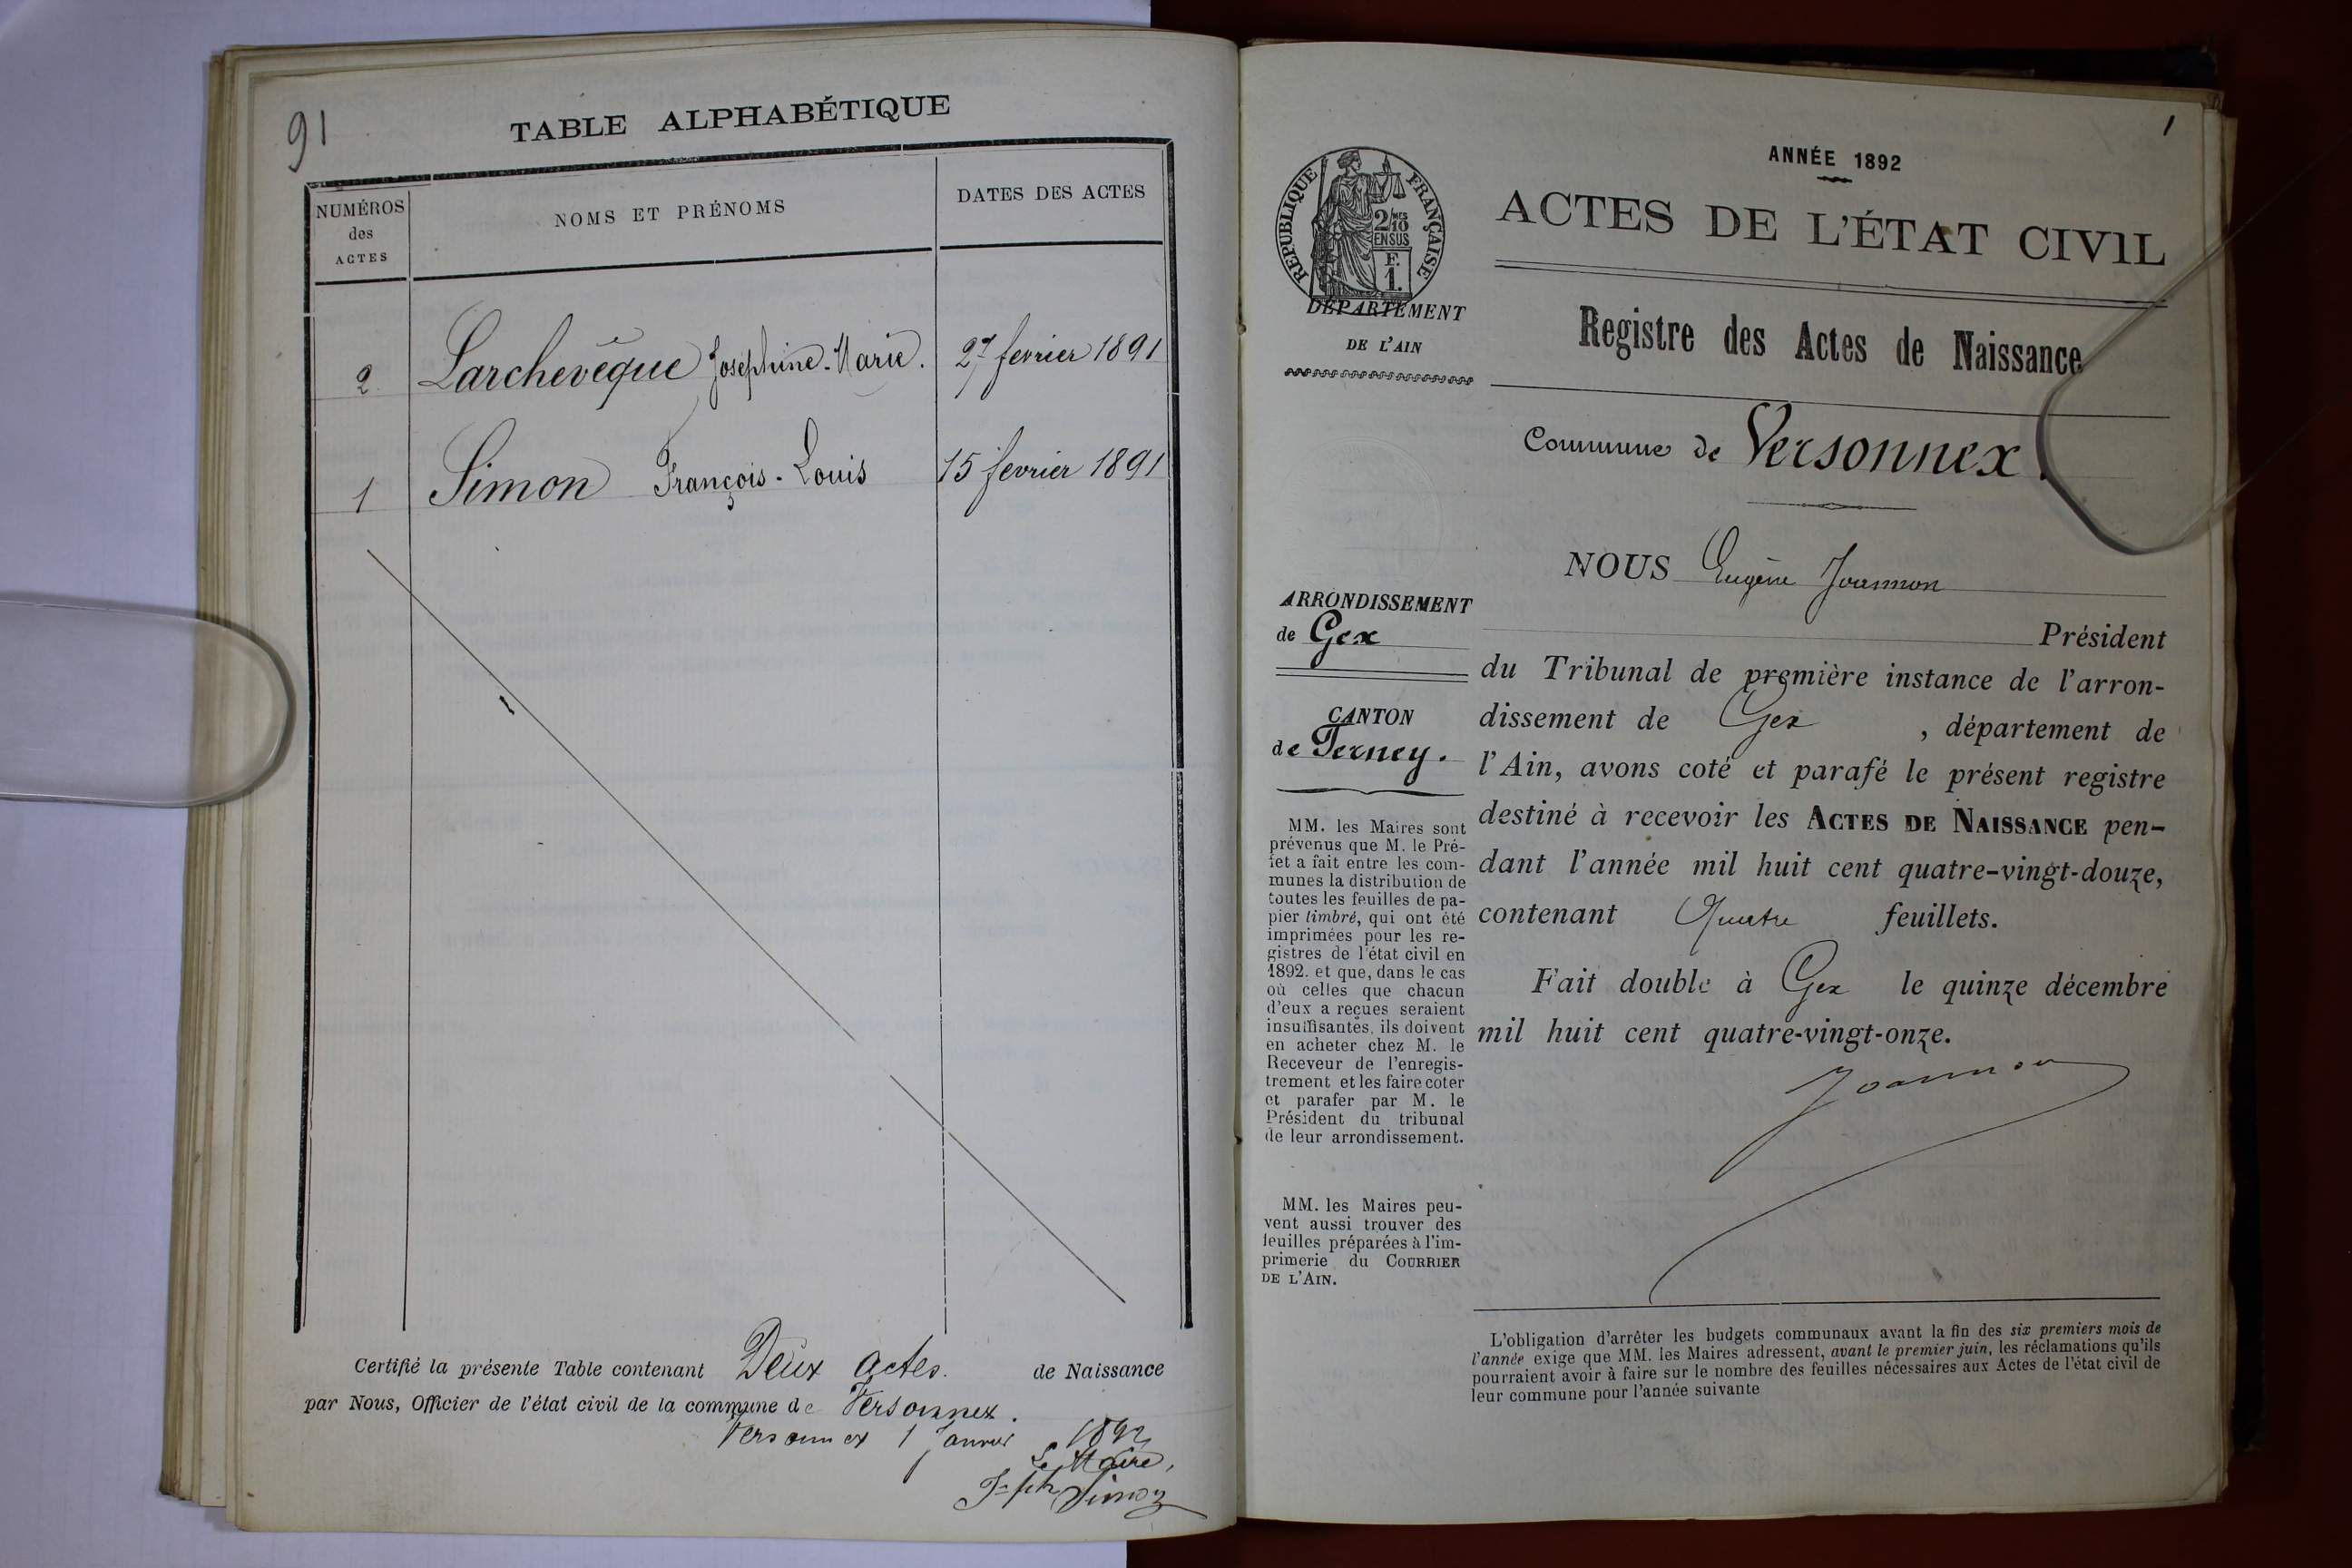 91
TABLE ALPHABÉTIQUE
NUMÉROS
des
ACTES
NOMS ET PRÉNOMS
DATES DES ACTES
2 Larchevêque Joséphine-Marie. 27 fevrier 1891
1 Simon François-Louis 15 fevrier 1891
Certifié la présente Table contenant Deux actes. de Naissance
par Nous, Officier de l'état civil de la commune de Versonnex.
Versonnex 1 Janvier 1892
Le Maire,
Jph Simon
1
ANNÉE 1892
ACTES DE L'ÉTAT CIVIL
RÉPUBLIQUE FRANÇAISE
2/10 MES
EN SUS
F.
1.
DÉPARTEMENT
DE L'AIN
Registre des Actes de Naissance
Commune de Versonnex.
ARRONDISSEMENT
de Gex
CANTON
de Ferney.
MM. les Maires sont
prévenus que M. le Pré-
fet a fait entre les com-
munes la distribution de
toutes les feuilles de pa-
pier timbré, qui ont été
imprimées pour les re-
gistres de l'état civil en
1892. et que, dans le cas
où celles que chacun
d'eux a reçues seraient
insuffisantes, ils doivent
en acheter chez M. le
Receveur de l'enregis-
trement et les faire coter
et parafer par M. le
Président du tribunal
de leur arrondissement.
MM. les Maires peu-
vent aussi trouver des
feuilles préparées à l'im-
primerie du COURRIER
DE L'AIN.
NOUS Eugène Joannon
Président
du Tribunal de première instance de l'arron-
dissement de Gex , département de
l'Ain, avons coté et parafé le présent registre
destiné à recevoir les ACTES DE NAISSANCE pen-
dant l'année mil huit cent quatre-vingt-douze,
contenant Quatre feuillets.
Fait double à Gex le quinze décembre
mil huit cent quatre-vingt-onze.
Joannon
L'obligation d'arrêter les budgets communaux avant la fin des six premiers mois de
l'année exige que MM. les Maires adressent, avant le premier juin, les réclamations qu'ils
pourraient avoir à faire sur le nombre des feuilles nécessaires aux Actes de l'état civil de
leur commune pour l'année suivante